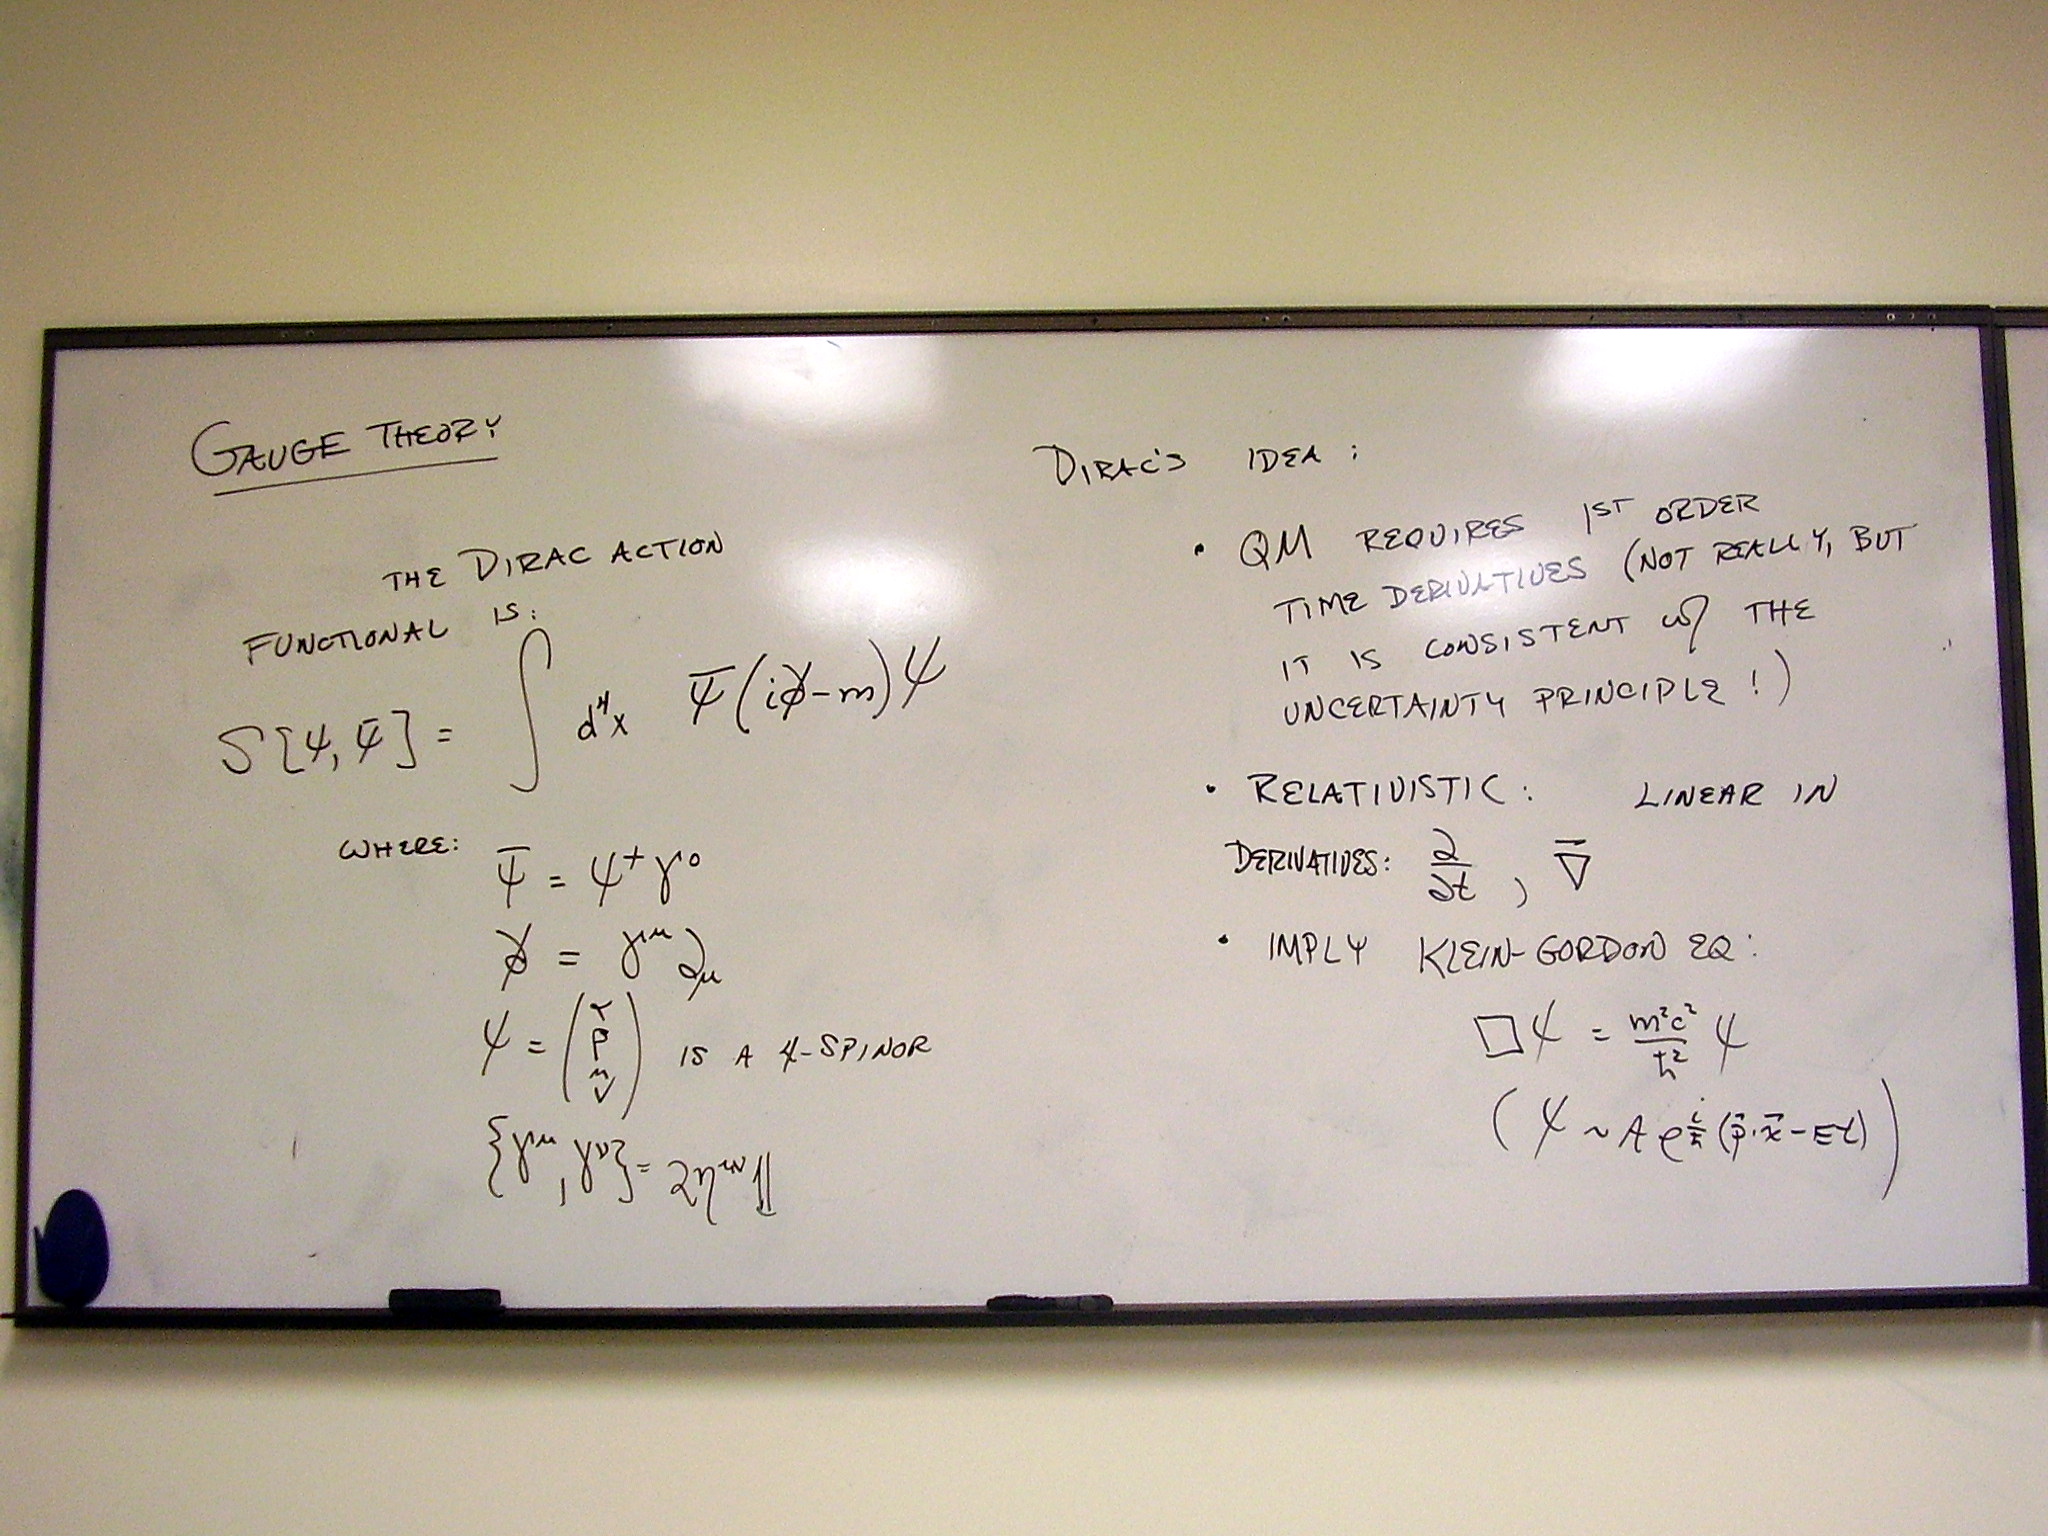 GAUGE THEORY
THE DIRAC ACTION
FUNCTIONAL IS:
S[ψ, ψ̄] = ∫ d⁴x ψ̄(i∂̸-m)ψ
WHERE:
ψ̄ = ψ⁺γ⁰
∂̸ = γ^μ ∂_μ
ψ = ( ) IS A 4-SPINOR
{γ^μ, γ^ν} = 2η^μν 𝟙
DIRAC'S IDEA:
• QM REQUIRES 1ST ORDER
TIME DERIVATIVES (NOT REALLY, BUT
IT IS CONSISTENT w/ THE
UNCERTAINTY PRINCIPLE!)
• RELATIVISTIC: LINEAR IN
DERIVATIVES: ∂/∂t, ∇̄
• IMPLY KLEIN-GORDON EQ:
□ψ = m²c²/ħ² ψ
(ψ ~ A e^{i/ħ (p⃗·x⃗-Et)})